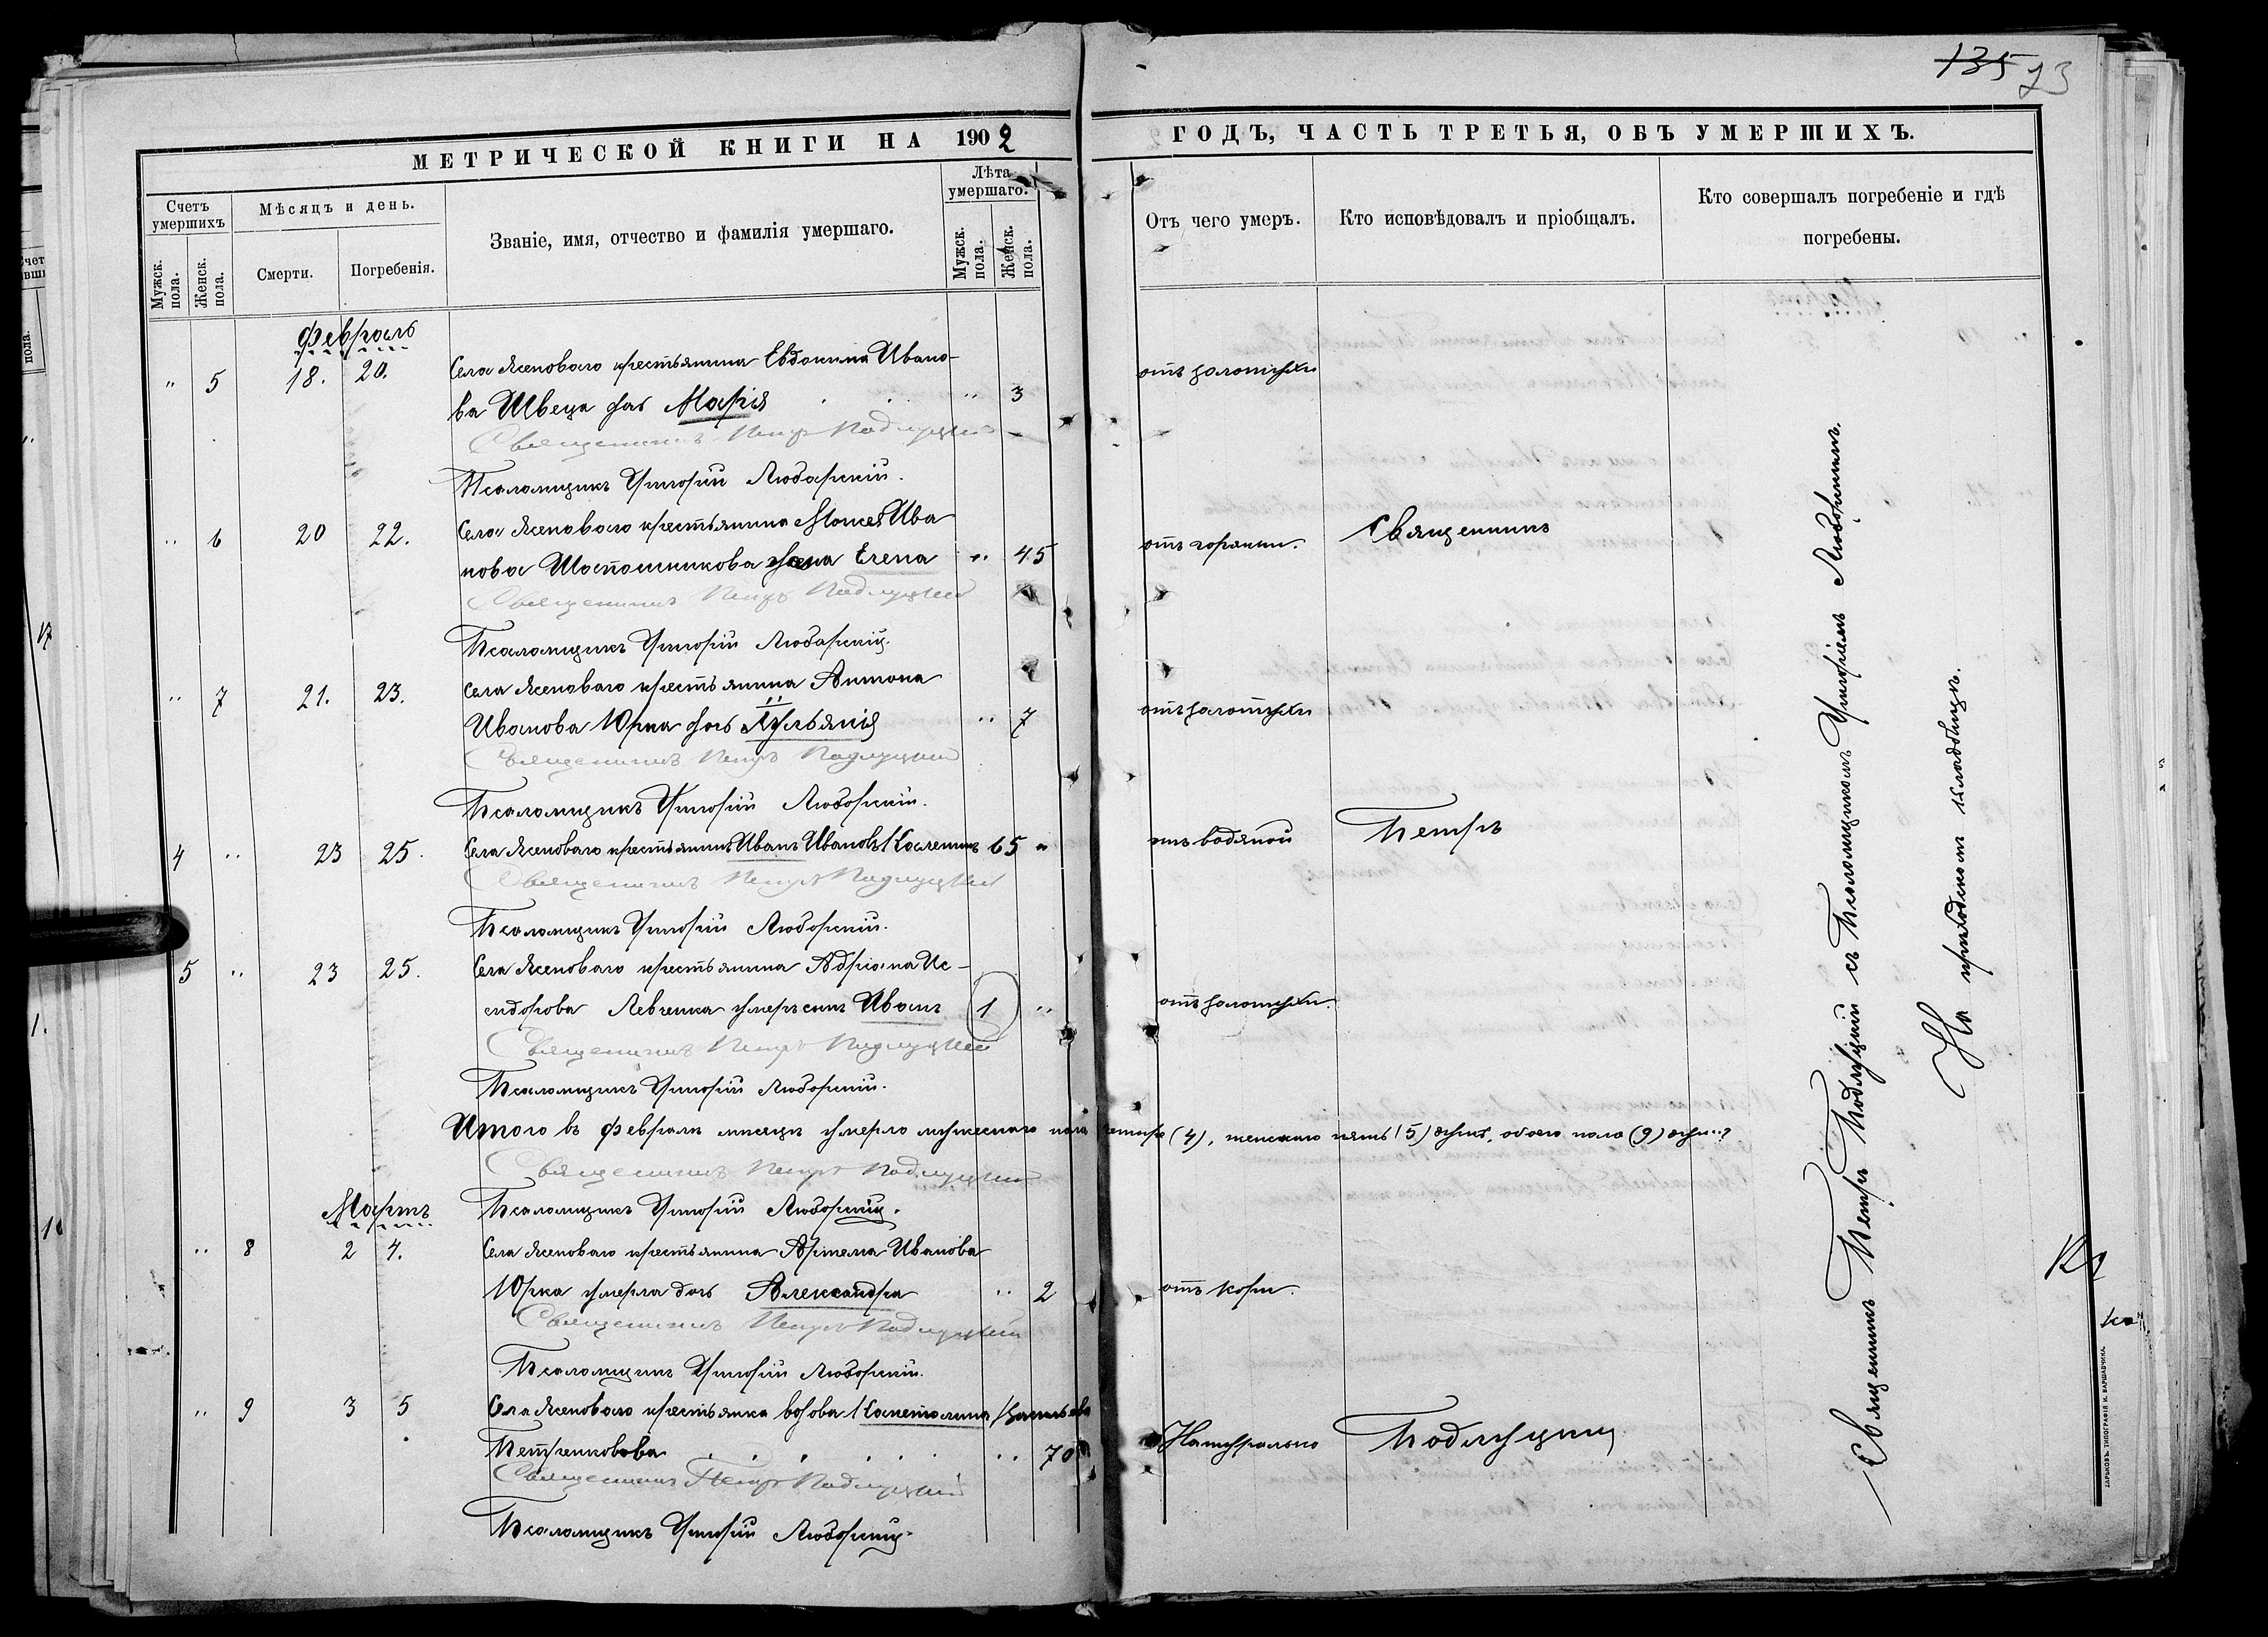 135 73
МЕТРИЧЕСКОЙ КНИГИ НА 1902
ГОДЪ, ЧАСТЬ ТРЕТЬЯ, ОБЪ УМЕРШИХЪ.
Счетъ умершихъ
Мѣсяцъ и день.
Званіе, имя, отчество и фамилія умершаго.
Лѣта умершаго.
Отъ чего умеръ.
Кто исповѣдовалъ и пріобщалъ.
Кто совершалъ погребеніе и гдѣ погребены.
Мужск. пола.
Женск. пола.
Смерти.
Погребенія.
Мужск. пола.
Женск. пола.
Февраль
" 5 18. 20. Села Ясеноваго крестьянина Евдокима Ивано-
ва Швеца дочь Марія " 3 отъ золотухи
Священникъ Петръ Подлуцкій
Псаломщикъ Григорій Любарскій.
" 6 20 22. Села Ясеноваго крестьянина Моисея Ива
нова Шапошникова жена Елена " 45 отъ горячки. Священникъ
Священникъ Петръ Подлуцкій
Псаломщикъ Григорій Любарскій.
" 7 21. 23. Села Ясеноваго крестьянина Антона
Иванова Юрка дочь " 7 отъ золотухи
Священникъ Петръ Подлуцкій
Псаломщикъ Григорій Любарскій.
4 " 23 25. Села Ясеноваго крестьянинъ Иванъ Ивановъ 65 " отъ водяной Петръ
Священникъ Петръ Подлуцкій
Псаломщикъ Григорій Любарскій.
5 " 23 25. Села Ясеноваго крестьянина Адріана Ис-
сидорова Левченка умеръ сынъ Иванъ 1 " отъ золотухи.
Священникъ Петръ Подлуцкій
Псаломщикъ Григорій Любарскій.
Итого въ Февралѣ мѣсяцѣ умерло мужескаго пола четыре (4), женскаго пять (5) душъ, обоего пола (9) душъ
Священникъ Петръ Подлуцкій
Псаломщикъ Григорій Любарскій.
Мартъ
" 8 2 4. Села Ясеноваго крестьянина Артема Иванова
Юрка умерла дочь Александра " 2 отъ кори.
Священникъ Петръ Подлуцкій
Псаломщикъ Григорій Любарскій.
" 9 3 5 Села Ясеноваго крестьянка вдова
Петренкова " 70 Натурально Подлуцкій
Священникъ Петръ Подлуцкій
Псаломщикъ Григорій Любарскій.
Священникъ Петръ Подлуцкій съ Псаломщикомъ Григоріемъ Любарскимъ.
На приходскомъ кладбищѣ.
ХАРЬКОВЪ. ТИПОГРАФІЯ И. ВАРШАВЧИКА.